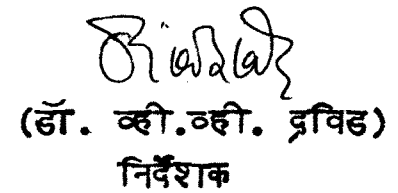 (डॉ. व्ही.व्ही. द्रविड)
निर्देशक